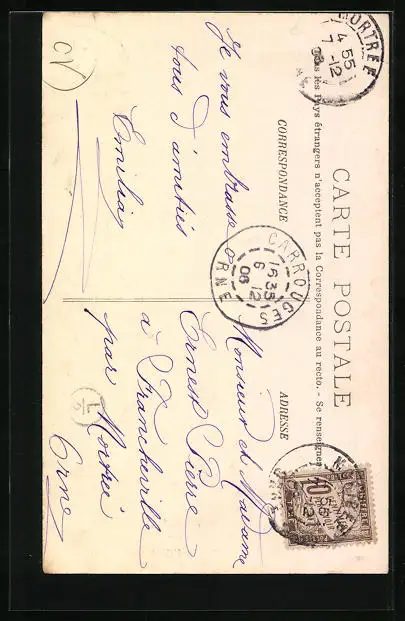 CARTE POSTALE
Tous les Pays étrangers n'acceptent pas la Correspondance au recto. - Se renseigner
CORRESPONDANCE
ADRESSE
Je vous embrasse
tous d'amitiés
Emilia
Monsieur et Madame
Ernest Pierre
à Francheville
par Mortrée
Orne
CARROUGES
16 35
6 12
06
ORNE
MORTRÉE
4 55
7 -12
OV
L
10